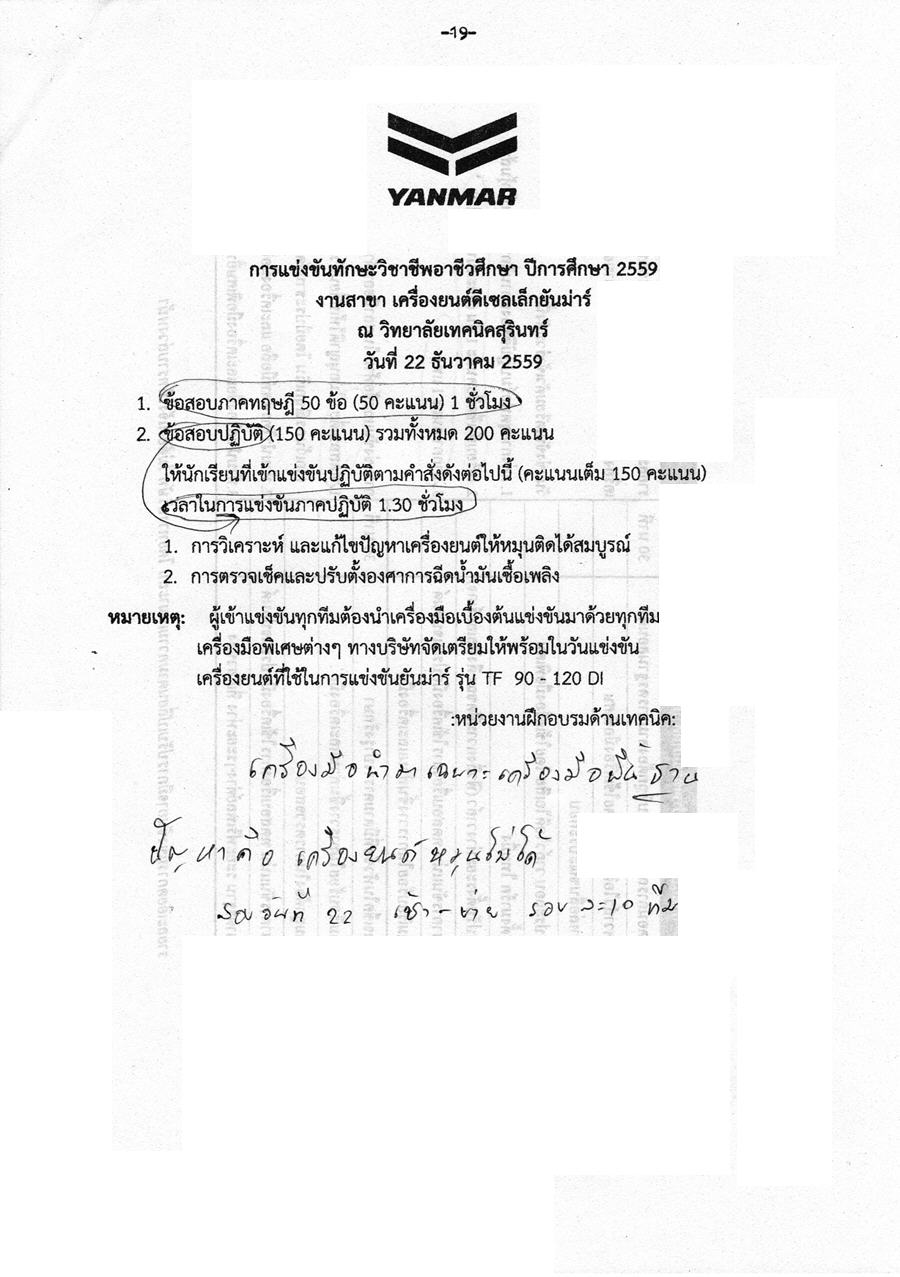 -19-
YANMAR
การแข่งขันทักษะวิชาชีพอาชีวศึกษา ปีการศึกษา 2559
งานสาขา เครื่องยนต์ดีเซลเล็กยันม่าร์
ณ วิทยาลัยเทคนิคสุรินทร์
วันที่ 22 ธันวาคม 2559
1. ข้อสอบภาคทฤษฎี 50 ข้อ (50 คะแนน) 1 ชั่วโมง
2. ข้อสอบปฏิบัติ (150 คะแนน) รวมทั้งหมด 200 คะแนน
ให้นักเรียนที่เข้าแข่งขันปฏิบัติตามคำสั่งดังต่อไปนี้ (คะแนนเต็ม 150 คะแนน)
เวลาในการแข่งขันภาคปฏิบัติ 1.30 ชั่วโมง
1. การวิเคราะห์ และแก้ไขปัญหาเครื่องยนต์ให้หมุนติดได้สมบูรณ์
2. การตรวจเช็คและปรับตั้งองศาการฉีดน้ำมันเชื้อเพลิง
หมายเหตุ: ผู้เข้าแข่งขันทุกทีมต้องนำเครื่องมือเบื้องต้นแข่งขันมาด้วยทุกทีม
เครื่องมือพิเศษต่างๆ ทางบริษัทจัดเตรียมให้พร้อมในวันแข่งขัน
เครื่องยนต์ที่ใช้ในการแข่งขันยันม่าร์ รุ่น TF 90 - 120 DI
:หน่วยงานฝึกอบรมด้านเทคนิค:
เครื่องมือนำมาเฉพาะเครื่องมือพื้นฐาน
ปัญหาคือ เครื่องยนต์หมุนไม่ได้
วันที่ 22 เช้า-บ่าย รอบละ 10 ทีม